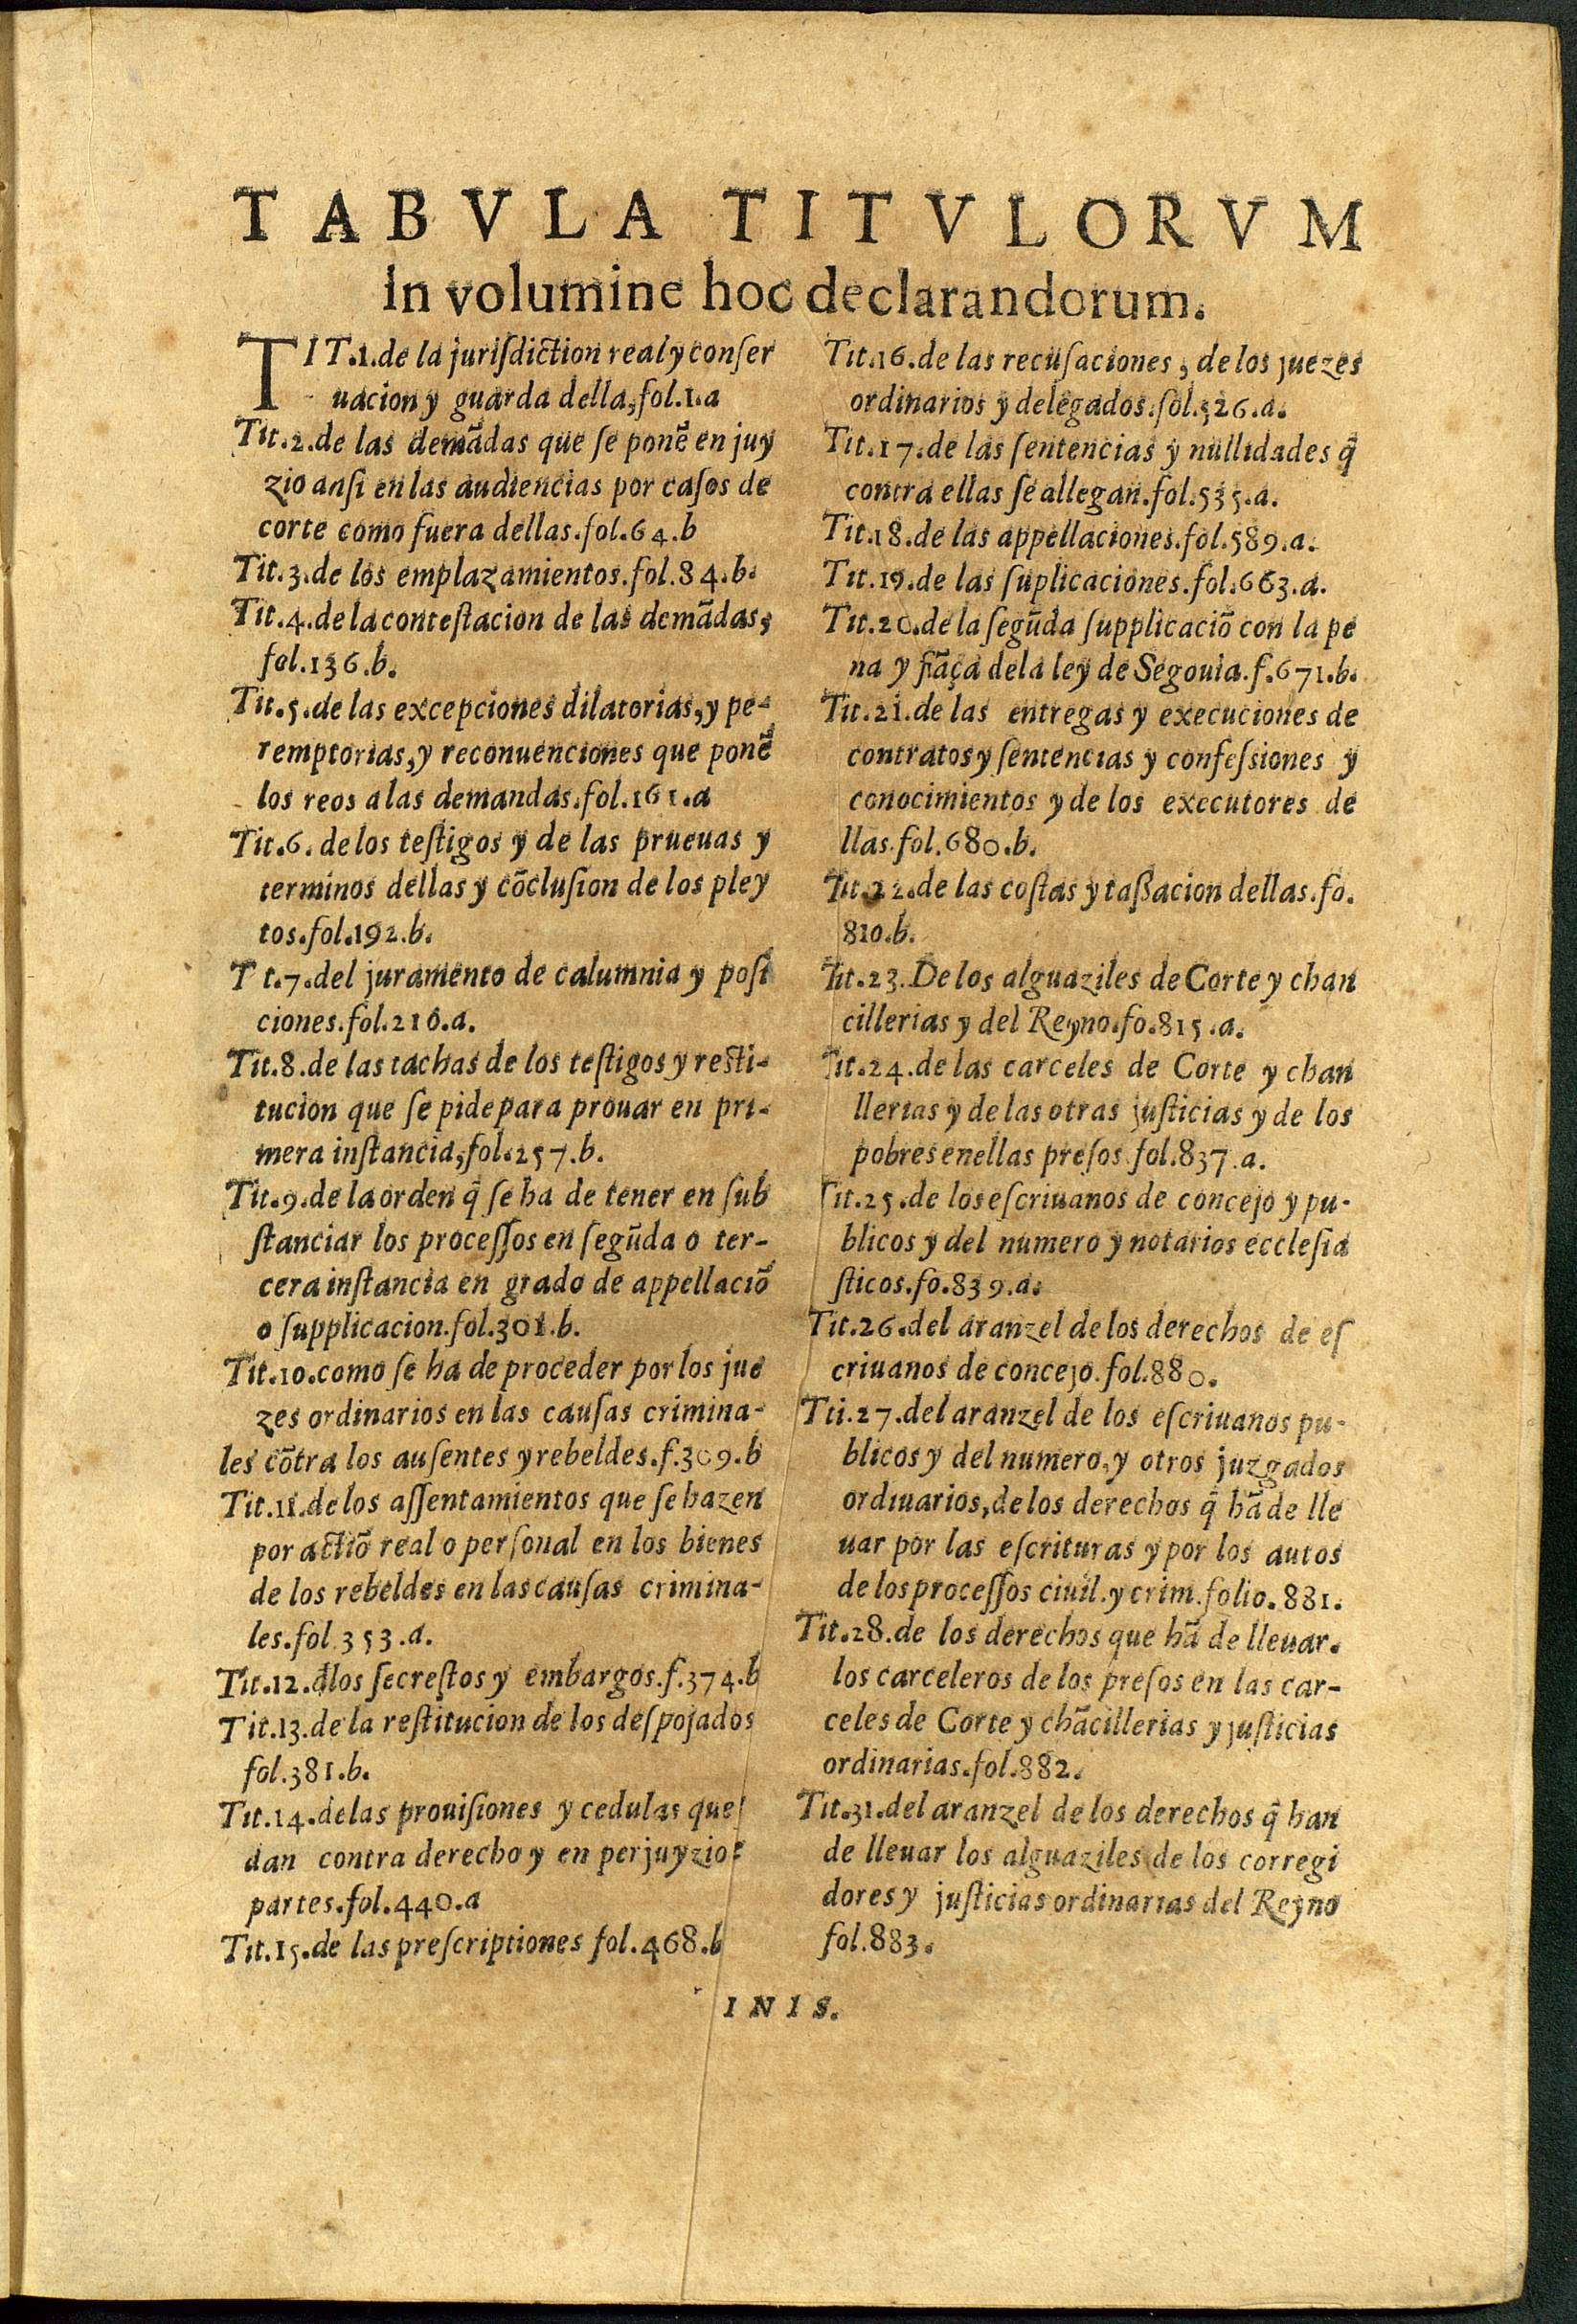 TABVLA TITVLORVM
in volumine hoc declarandorum.
TIT.1.de la jurisdiction real y conser
uacion y guarda della, fol.1.a
Tit.2.de las demãdas que se ponẽ en juy
zio ansi en las audiencias por casos de
corte como fuera dellas.fol.64.b
Tit.3.de los emplazamientos.fol.84.b.
Tit.4.de la contestacion de las demãdas,
fol.136.b.
Tit.5.de las excepciones dilatorias, y pe-
remptorias, y reconuenciones que ponẽ
los reos a las demandas.fol.161.a
Tit.6. de los testigos y de las prueuas y
terminos dellas y cõclusion de los pley
tos.fol.192.b.
T t.7.del juramento de calumnia y posi
ciones.fol.216.a.
Tit.8.de las tachas de los testigos y resti-
tucion que se pide para prouar en pri-
mera instancia, fol.257.b.
Tit.9.de la orden q̃ se ha de tener en sub
stanciar los processos en segũda o ter-
cera instancia en grado de appellaciõ
o supplicacion.fol.301.b.
Tit.10.como se ha de proceder por los jue
zes ordinarios en las causas crimina-
les cõtra los ausentes y rebeldes.f.309.b
Tit.11.de los assentamientos que se hazen
por actiõ real o personal en los bienes
de los rebeldes en las causas crimina-
les.fol.353.a.
Tit.12.đlos secrestos y embargos.f.374.b
Tit.13.de la restitucion de los despojados
fol.381.b.
Tit.14.de las prouisiones y cedulas que
dan contra derecho y en perjuyzio
partes.fol.440.a
Tit.15.de las prescriptiones fol.468.b
Tit.16.de las recusaciones, de los juezes
ordinarios y delegados.fol.526.a.
Tit.17.de las sentencias y nullidades q̃
contra ellas se allegan.fol.535.a.
Tit.18.de las appellaciones.fol.589.a.
Tit.19.de las suplicaciones.fol.663.a.
Tit.20.de la segũda supplicaciõ con la pe
na y fiãça de la ley de Segouia.f.671.b.
Tit.21.de las entregas y execuciones de
contratos y sentencias y confessiones y
conocimientos y de los executores de
llas.fol.680.b.
Tit.22.de las costas y tassacion dellas.fo.
810.b.
Tit.23.De los alguaziles de Corte y chan
cillerias y del Reyno.fo.815.a.
Tit.24.de las carceles de Corte y chan
llerias y de las otras justicias y de los
pobres en ellas presos.fol.837.a.
Tit.25.de los escriuanos de concejo y pu-
blicos y del numero y notarios ecclesia
sticos.fo.839.a.
Tit.26.del aranzel de los derechos de es
criuanos de concejo.fol.880.
Tti.27.del aranzel de los escriuanos pu-
blicos y del numero, y otros juzgados
ordiuarios, de los derechos q̃ hã de lle
uar por las escrituras y por los autos
de los processos ciuil.y crim.folio.881.
Tit.28.de los derechos que hã de lleuar.
los carceleros de los presos en las car-
celes de Corte y chãcillerias y justicias
ordinarias.fol.882.
Tit.31.del aranzel de los derechos q̃ han
de lleuar los alguaziles de los corregi
dores y justicias ordinarias del Reyno
fol.883.
INIS.